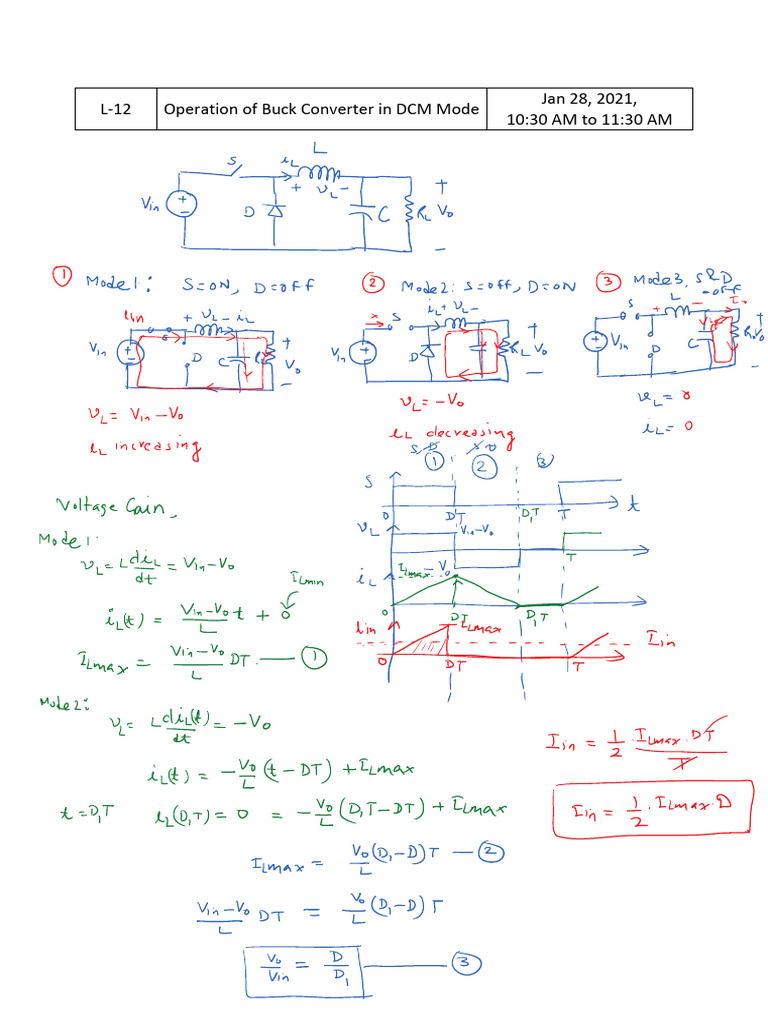 L-12 Operation of Buck Converter in DCM Mode Jan 28, 2021, 10:30 AM to 11:30 AM
S iL L
+ vL -
Vin + - D C RL Vo + -
① Mode 1: S=ON, D=OFF
② Mode 2: S=OFF, D=ON
③ Mode 3, S & D -OFF
iin + vL - iL
Vin + - D C RL + Vo -
x S iL + vL -
Vin + - D RL + Vo -
S + L -
Vin + - D C RL + Vo -
vL = Vin - Vo
iL increasing
vL = -Vo
iL decreasing
vL = 0
iL = 0
① ② ③
S 0 DT D1T T t
vL Vin-Vo -Vo T
iL ILmax 0 DT D1T
iin ILmax Iin 0 DT T
Voltage Gain,
Mode 1:
vL = L diL/dt = Vin - Vo
iL(t) = (Vin-Vo)/L t + 0 ILmin
ILmax = (Vin-Vo)/L DT. — ①
Mode 2:
vL = L diL(t)/dt = -Vo
iL(t) = -Vo/L (t-DT) + ILmax
t = D1T iL(D1T) = 0 = -Vo/L (D1T-DT) + ILmax
ILmax = Vo/L (D1-D)T — ②
(Vin-Vo)/L DT = Vo/L (D1-D)T
Vo/Vin = D/D1 — ③
Iin = 1/2 · ILmax · DT/T
Iin = 1/2 · ILmax · D